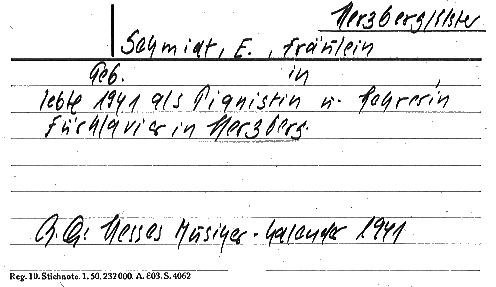 Herzberg/Elster
Schmidt, E., Fräulein
Geb. in ,
lebte 1941 als Pianistin u. Lehrerin
für Klavier in Herzberg.
Hesses Musiker-Kalender 1941
Reg. 10. Stichnote. 1. 50, 232 000. A. 803. S. 4062